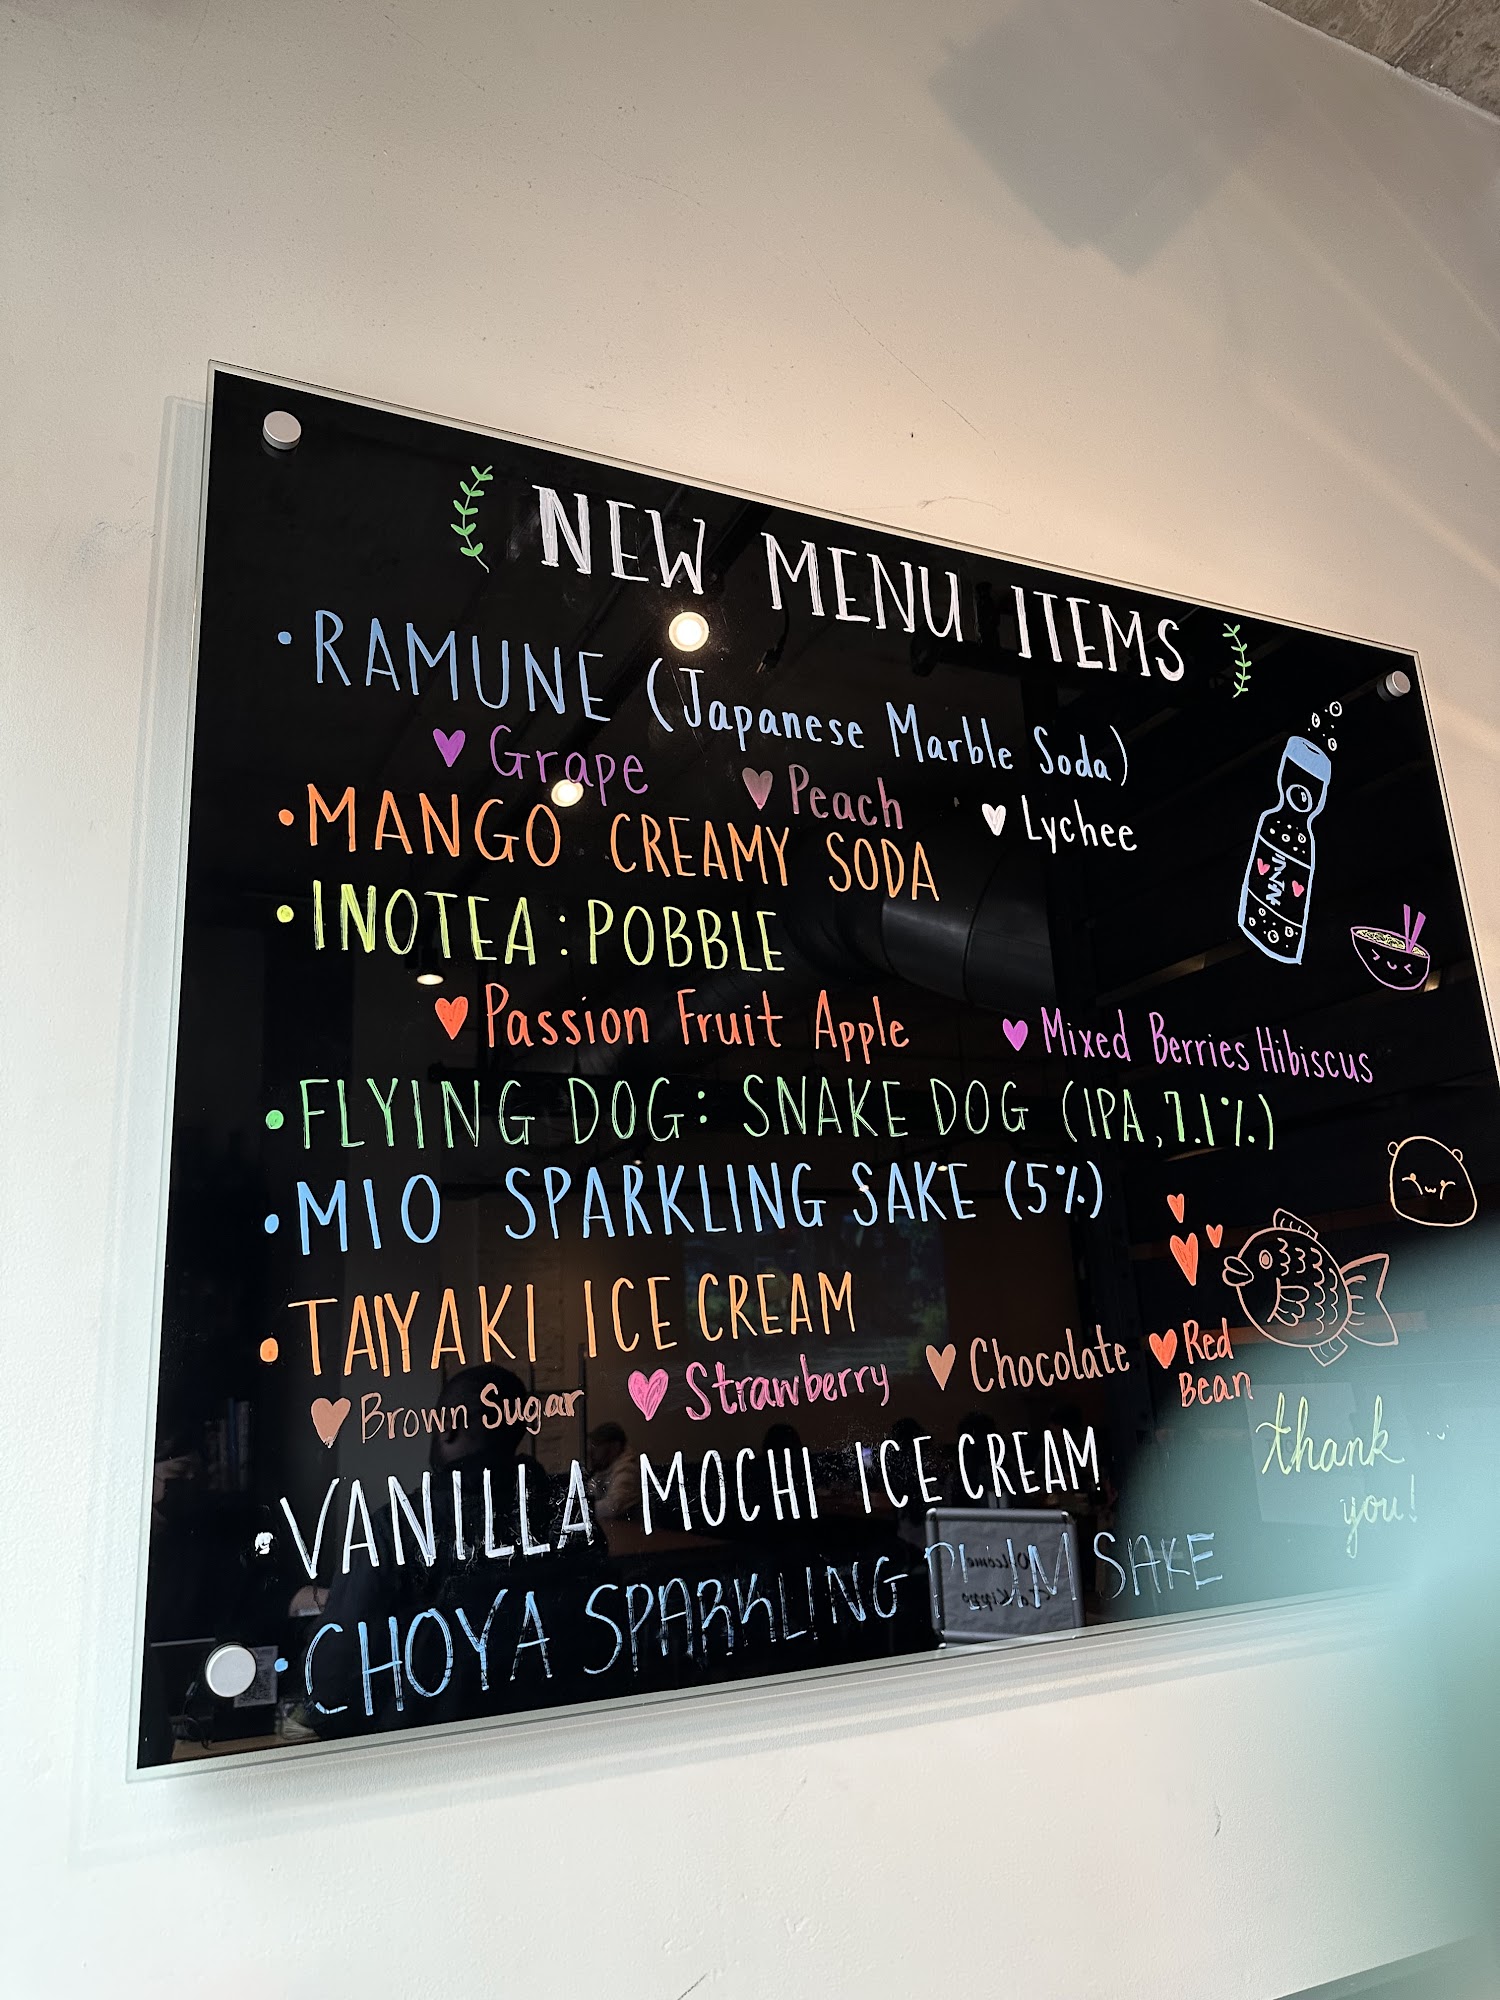 NEW MENU ITEMS
• RAMUNE (Japanese Marble Soda)
♥ Grape ♥ Peach ♥ Lychee
• MANGO CREAMY SODA
• INOTEA: POBBLE
♥ Passion Fruit Apple ♥ Mixed Berries Hibiscus
• FLYING DOG: SNAKE DOG (IPA, 7.1%)
• MIO SPARKLING SAKE (5%)
• TAIYAKI ICE CREAM
♥ Brown Sugar ♥ Strawberry ♥ Chocolate ♥ Red
Bean
• VANILLA MOCHI ICE CREAM
• CHOYA SPARKLING PLUM SAKE
thank
you!